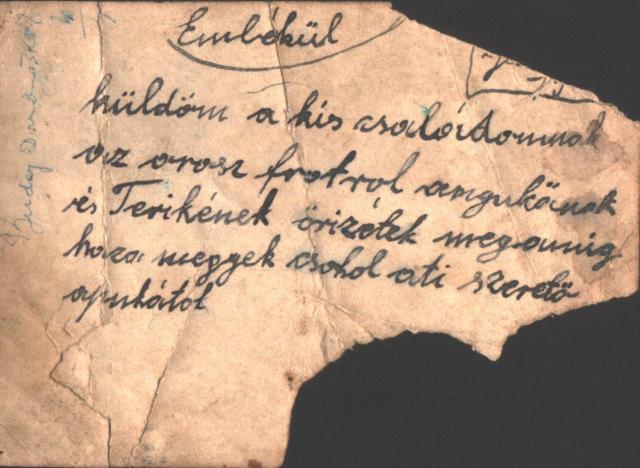 Embékül
küldöm a kis csaloádomnak
az orosz frotrol anyukának
és Terikének örizétek meg amig
haza megyek csokol ati szerető
apukátol